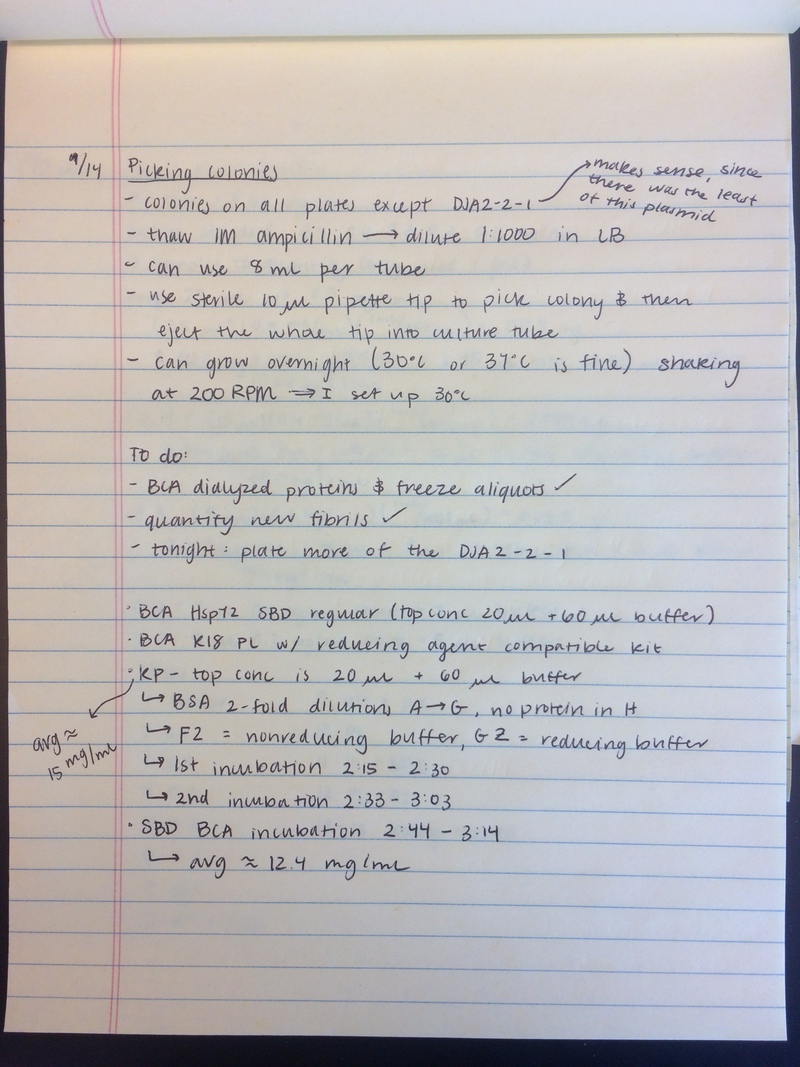 9/14 Picking colonies
makes sense, since
there was the least
of this plasmid
- colonies on all plates except DJA2-2-1
- thaw 1M ampicillin → dilute 1:1000 in LB
- can use 8 ml per tube
- use sterile 10 µl pipette tip to pick colony & then
eject the whole tip into culture tube
- can grow overnight (30°C or 37°C is fine) shaking
at 200 RPM ⇒ I set up 30°C
To do:
- BCA dialyzed proteins & freeze aliquots ✓
- quantify new fibrils ✓
- tonight: plate more of the DJA2-2-1
· BCA Hsp72 SBD regular (top conc 20 µl + 60 µl buffer)
· BCA K18 PL w/ reducing agent compatible kit
· KP - top conc is 20 µl + 60 µl buffer
↳ BSA 2-fold dilutions A→G, no protein in H
↳ F2 = nonreducing buffer, G2 = reducing buffer
avg ≈
15 mg/ml
↳ 1st incubation 2:15 - 2:30
↳ 2nd incubation 2:33 - 3:03
· SBD BCA incubation 2:44 - 3:14
↳ avg ≈ 12.4 mg/ml